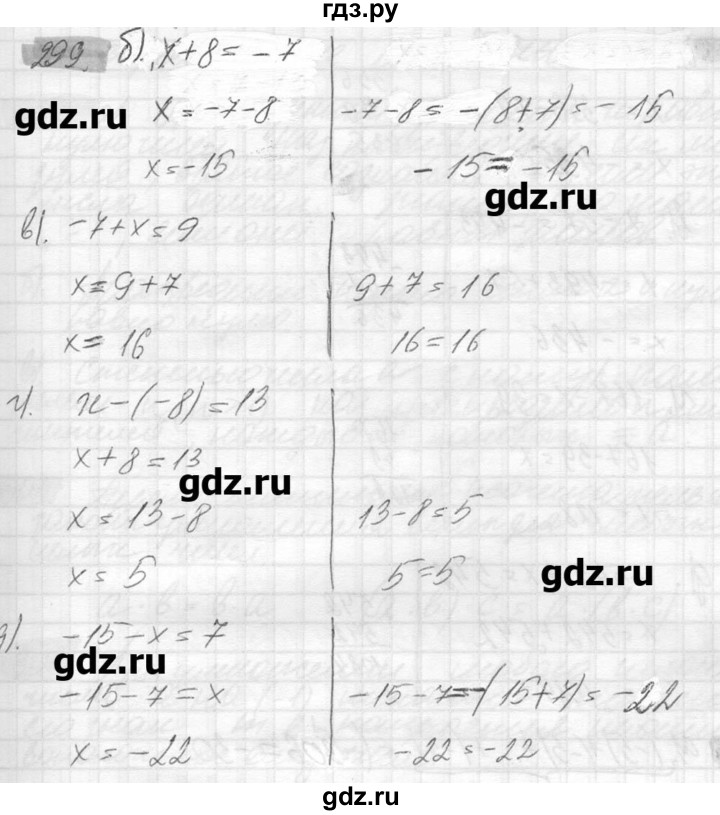 гдз.ру
299. б). x+8=-7
x=-7-8
-7-8=-(8+7)=-15
gdz.ru
x=-15
-15=-15
gdz.ru
в). -7+x=9
x=9+7
9+7=16
x=16
16=16
г). x-(-8)=13
x+8=13
gdz.ru
x=13-8
13-8=5
x=5
5=5
gdz.ru
д). -15-x=7
gdz.ru
-15-7=x
-15-7=-(15+7)=-22
x=-22
-22=-22
gdz.ru